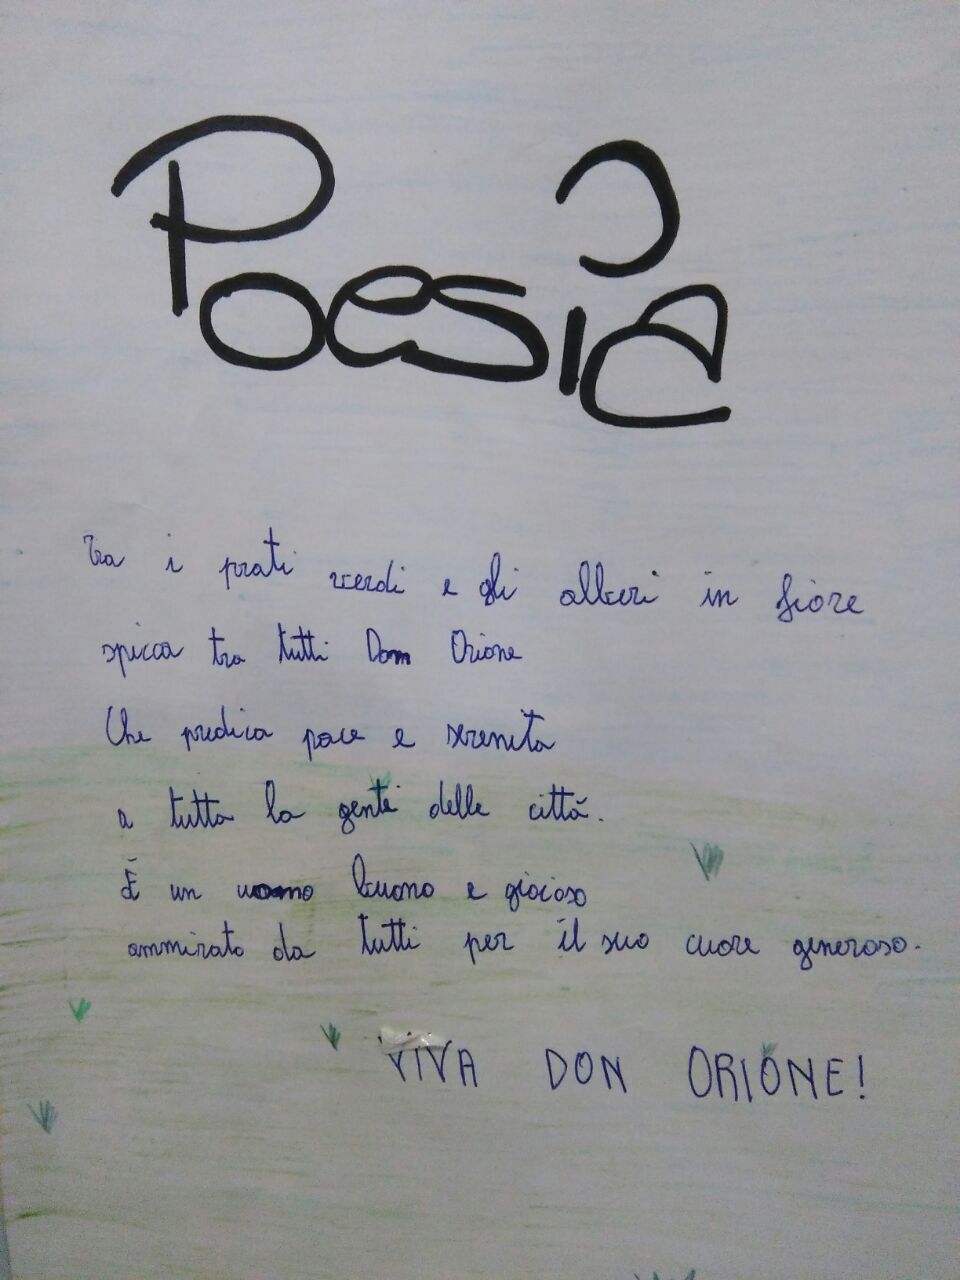 Poesia
Tra i prati verdi e gli alberi in fiore
spicca tra tutti Don Orione
Che predica pace e serenità
a tutta la gente delle città.
È un uomo buono e gioioso
ammirato da tutti per il suo cuore generoso.
VIVA DON ORIONE!